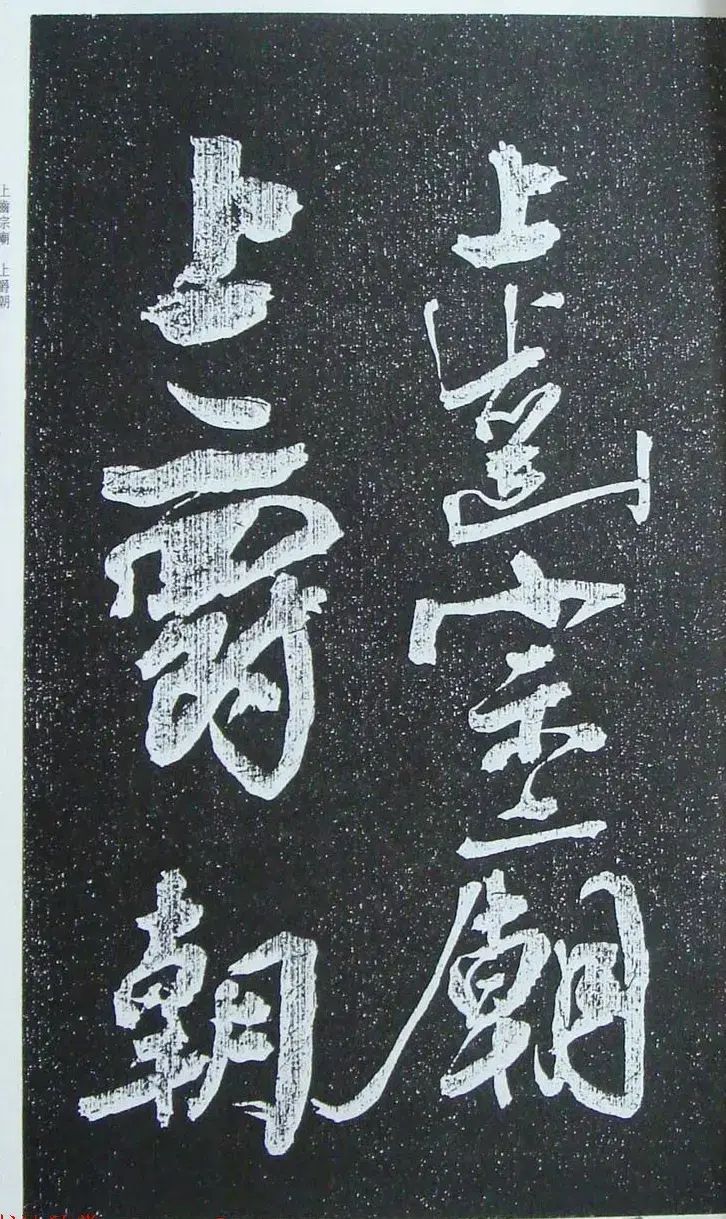 上齒宗廟
上爵朝
上齒宗廟　上爵朝